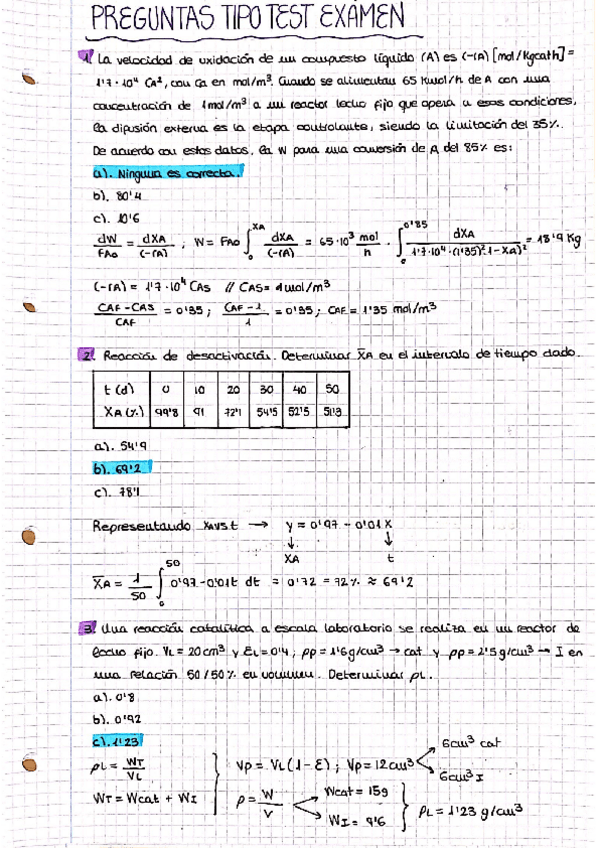 PREGUNTAS TIPO TEST EXAMEN
1. La velocidad de oxidación de un compuesto líquido (A) es (-rA) [mol/Kgcat h] =
1'7·10⁴ CA², con Ca en mol/m³. Cuando se alimentan 65 Kmol/h de A con una
concentración de 1mol/m³ a un reactor lecho fijo que opera a esas condiciones,
la difusión externa es la etapa controlante, siendo la limitación del 35%.
De acuerdo con estos datos, la W para una conversión de A del 85% es:
a). Ninguna es correcta.
b). 80'4
c). 10'6
dW/FAO = dXA/(-rA) ; W = FAO ∫₀^XA dXA/(-rA) = 65·10³ mol/h · ∫₀^0'85 dXA/1'7·10⁴·(1'35)²·1-XA)² = 18'9 Kg
(-rA) = 1'7·10⁴ CAS // CAS = 1mol/m³
CAF-CAS/CAF = 0'35 ; CAF-1/1 = 0'35 ; CAF = 1'35 mol/m³
2. Reacción de desactivación. Determinar X̄A en el intervalo de tiempo dado.
t (d) 0 10 20 30 40 50
XA (%) 99'8 91 72'1 54'5 52'5 51'3
a). 54'9
b). 69'2
c). 78'1
Representando XA vs t → y = 0'97 - 0'01 X
↓ ↓
XA t
X̄A = 1/50 ∫₀^50 0'97-0'01t dt = 0'72 = 72% ≈ 69'2
3. Una reacción catalítica a escala laboratorio se realiza en un reactor de
lecho fijo. VL = 20cm³ y EL = 0'4 ; ρp = 1'6g/cm³ → cat y ρp = 2'5g/cm³ → I en
una relación 50/50% en volumen. Determinar ρL.
a). 0'8
b). 0'92
c). 1'23
ρL = WT/VL
WT = Wcat + WI
Vp = VL(1-E) ; Vp = 12cm³
6cm³ cat
6cm³ I
ρ = W/V
Wcat = 15g
WI = 9'6
ρL = 1'23 g/cm³